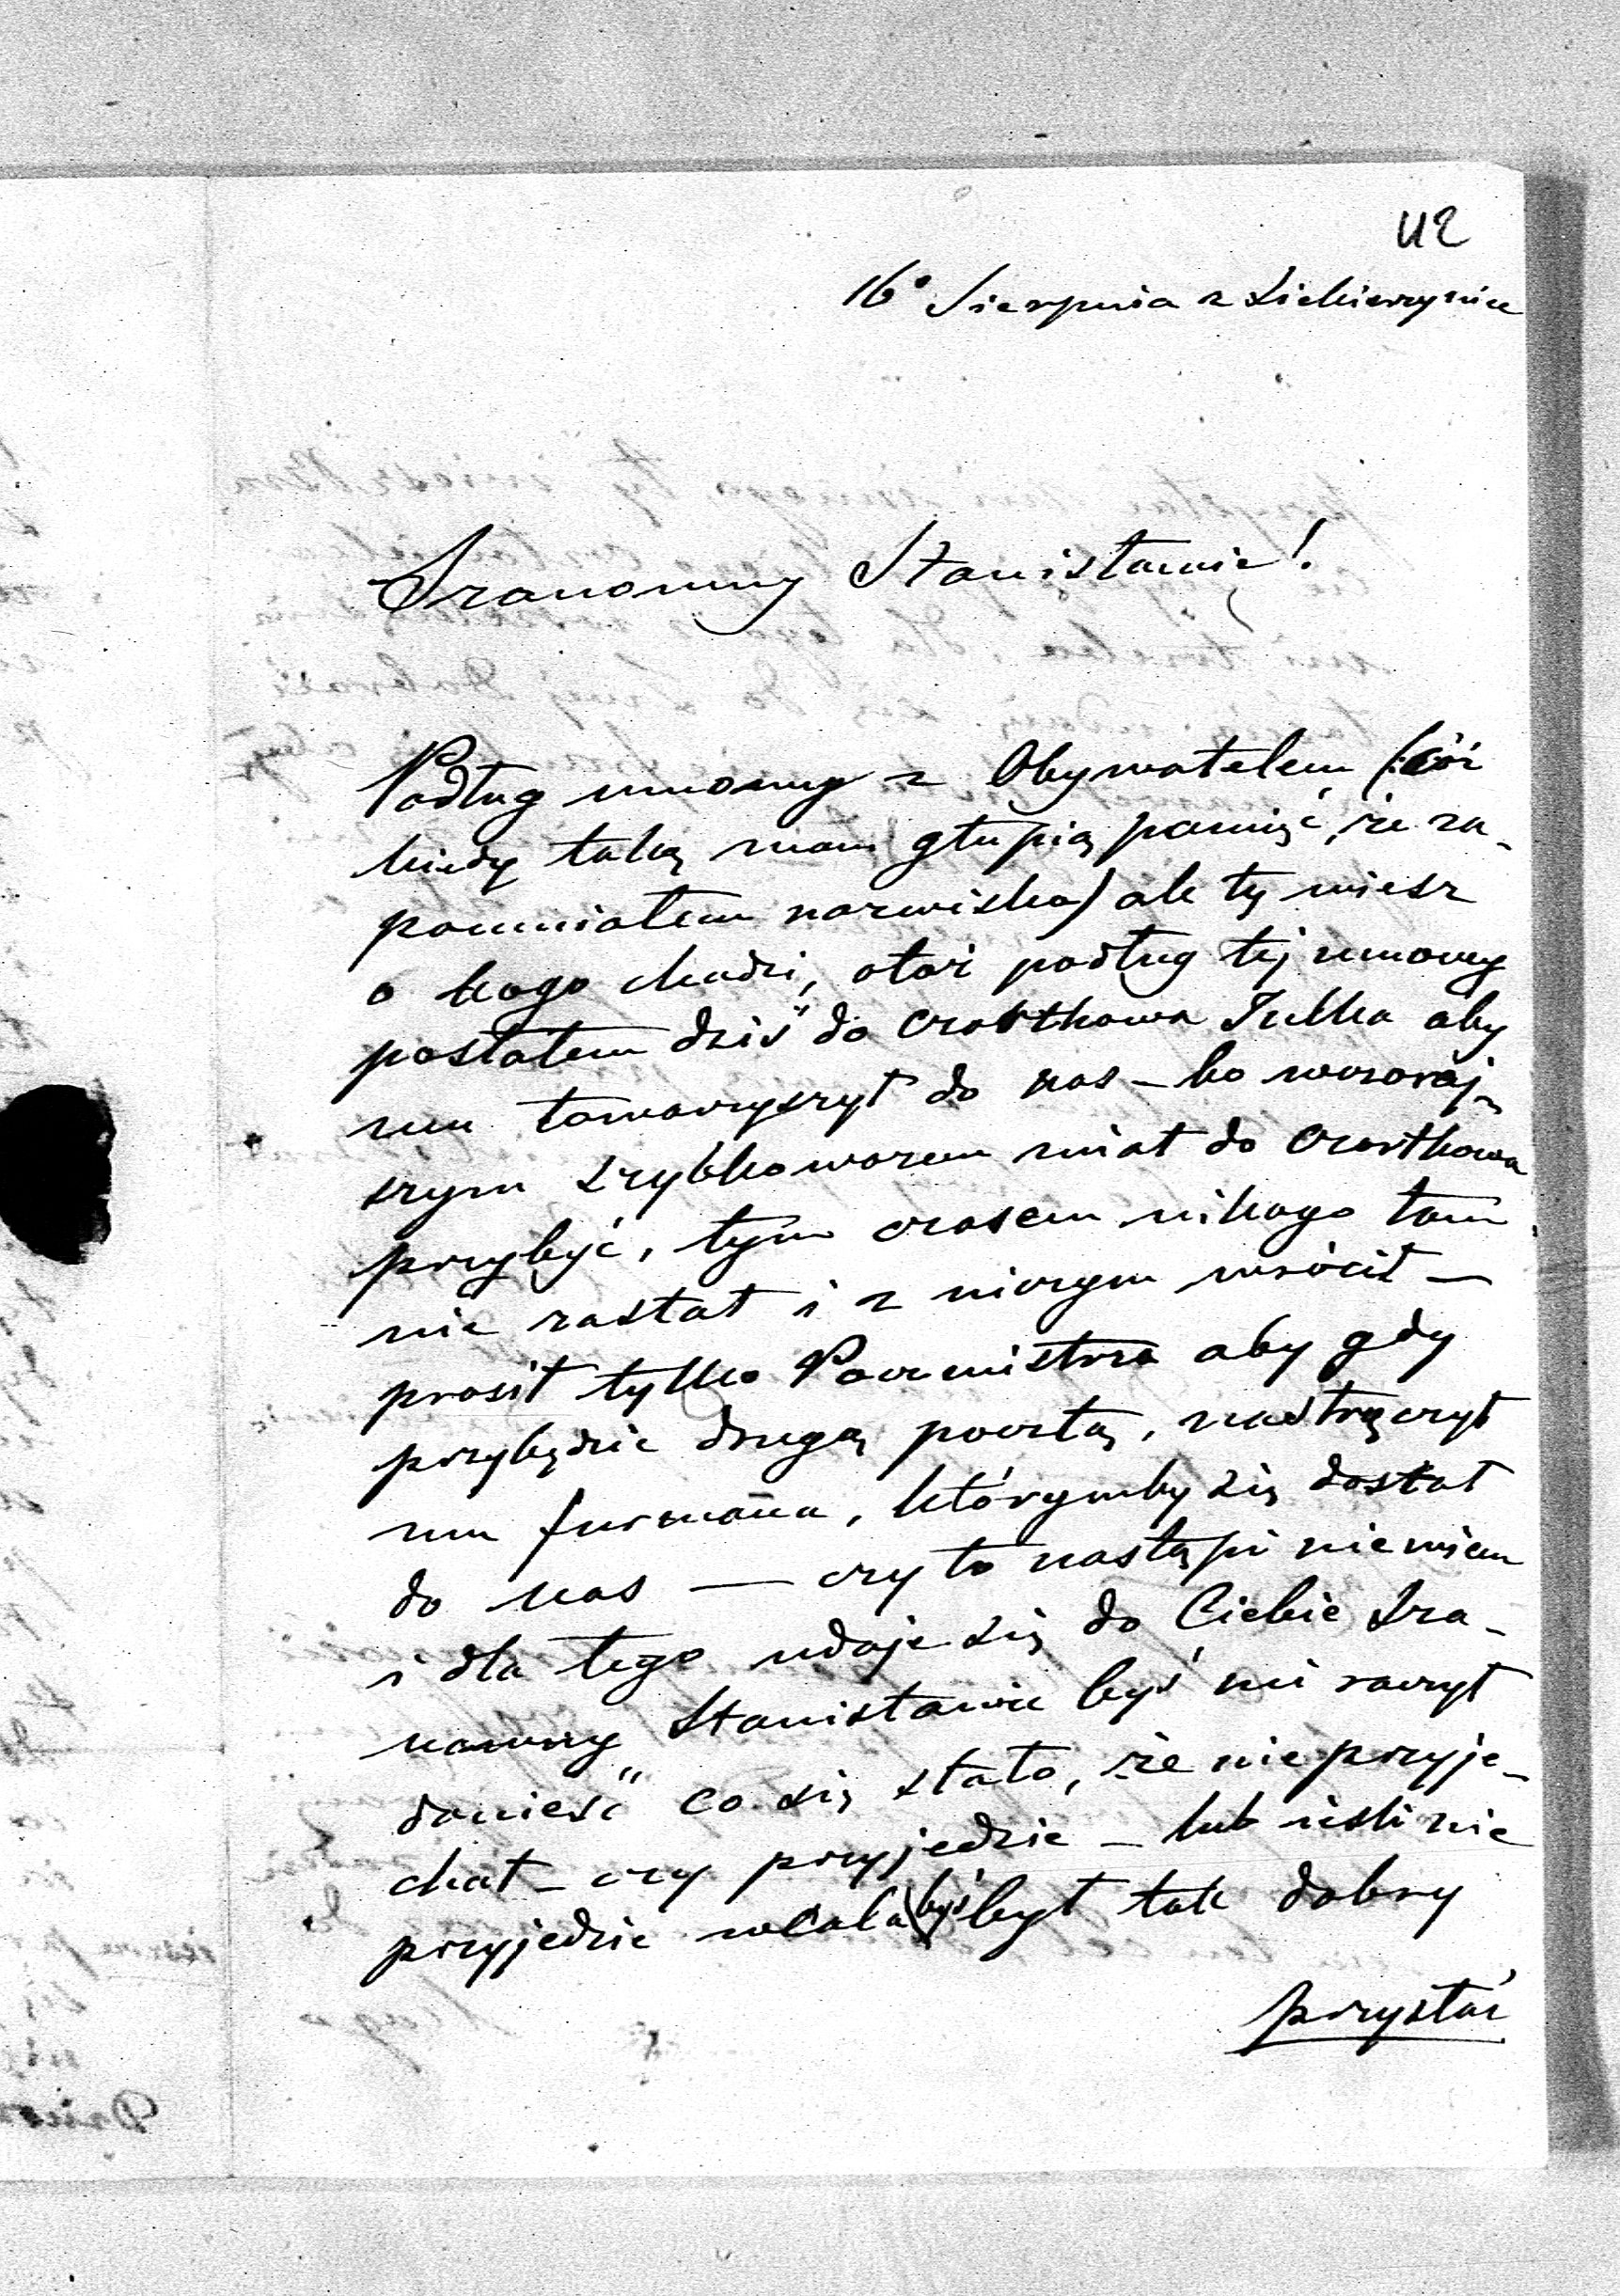 42
16° Sierpnia z Siekierzyniec
Szanowny Stanisławie!
Podług umowy z Obywatelem (cóż
kiedy taką mam głupią pamięć, że za-
pomniałem nazwiska) ale ty wiesz
o kogo chodzi, otóż podług tej umowy
posłałem dziś do Czortkowa Julka aby
mu towarzyszył do nas – bo wczoraj-
szym szybkowozem miał do Czortkowa
przybyć, tym czasem nikogo tam
nie zastał i z niczym wrócił —
prosił tylko Pocmistrza aby gdy
przybędzie drugą pocztą, nastręczył
mu furmana, którymby się dostał
do nas — czy to nastąpi nie wiem
i dla tego udaje się do Ciebie Sza-
nowny Stanisławie byś mi raczył
donieść co się stało, że nie przyje-
chał – czy przyjedzie – lub jeśli nie
przyjedzie wcale byś był tak dobry
przysłać